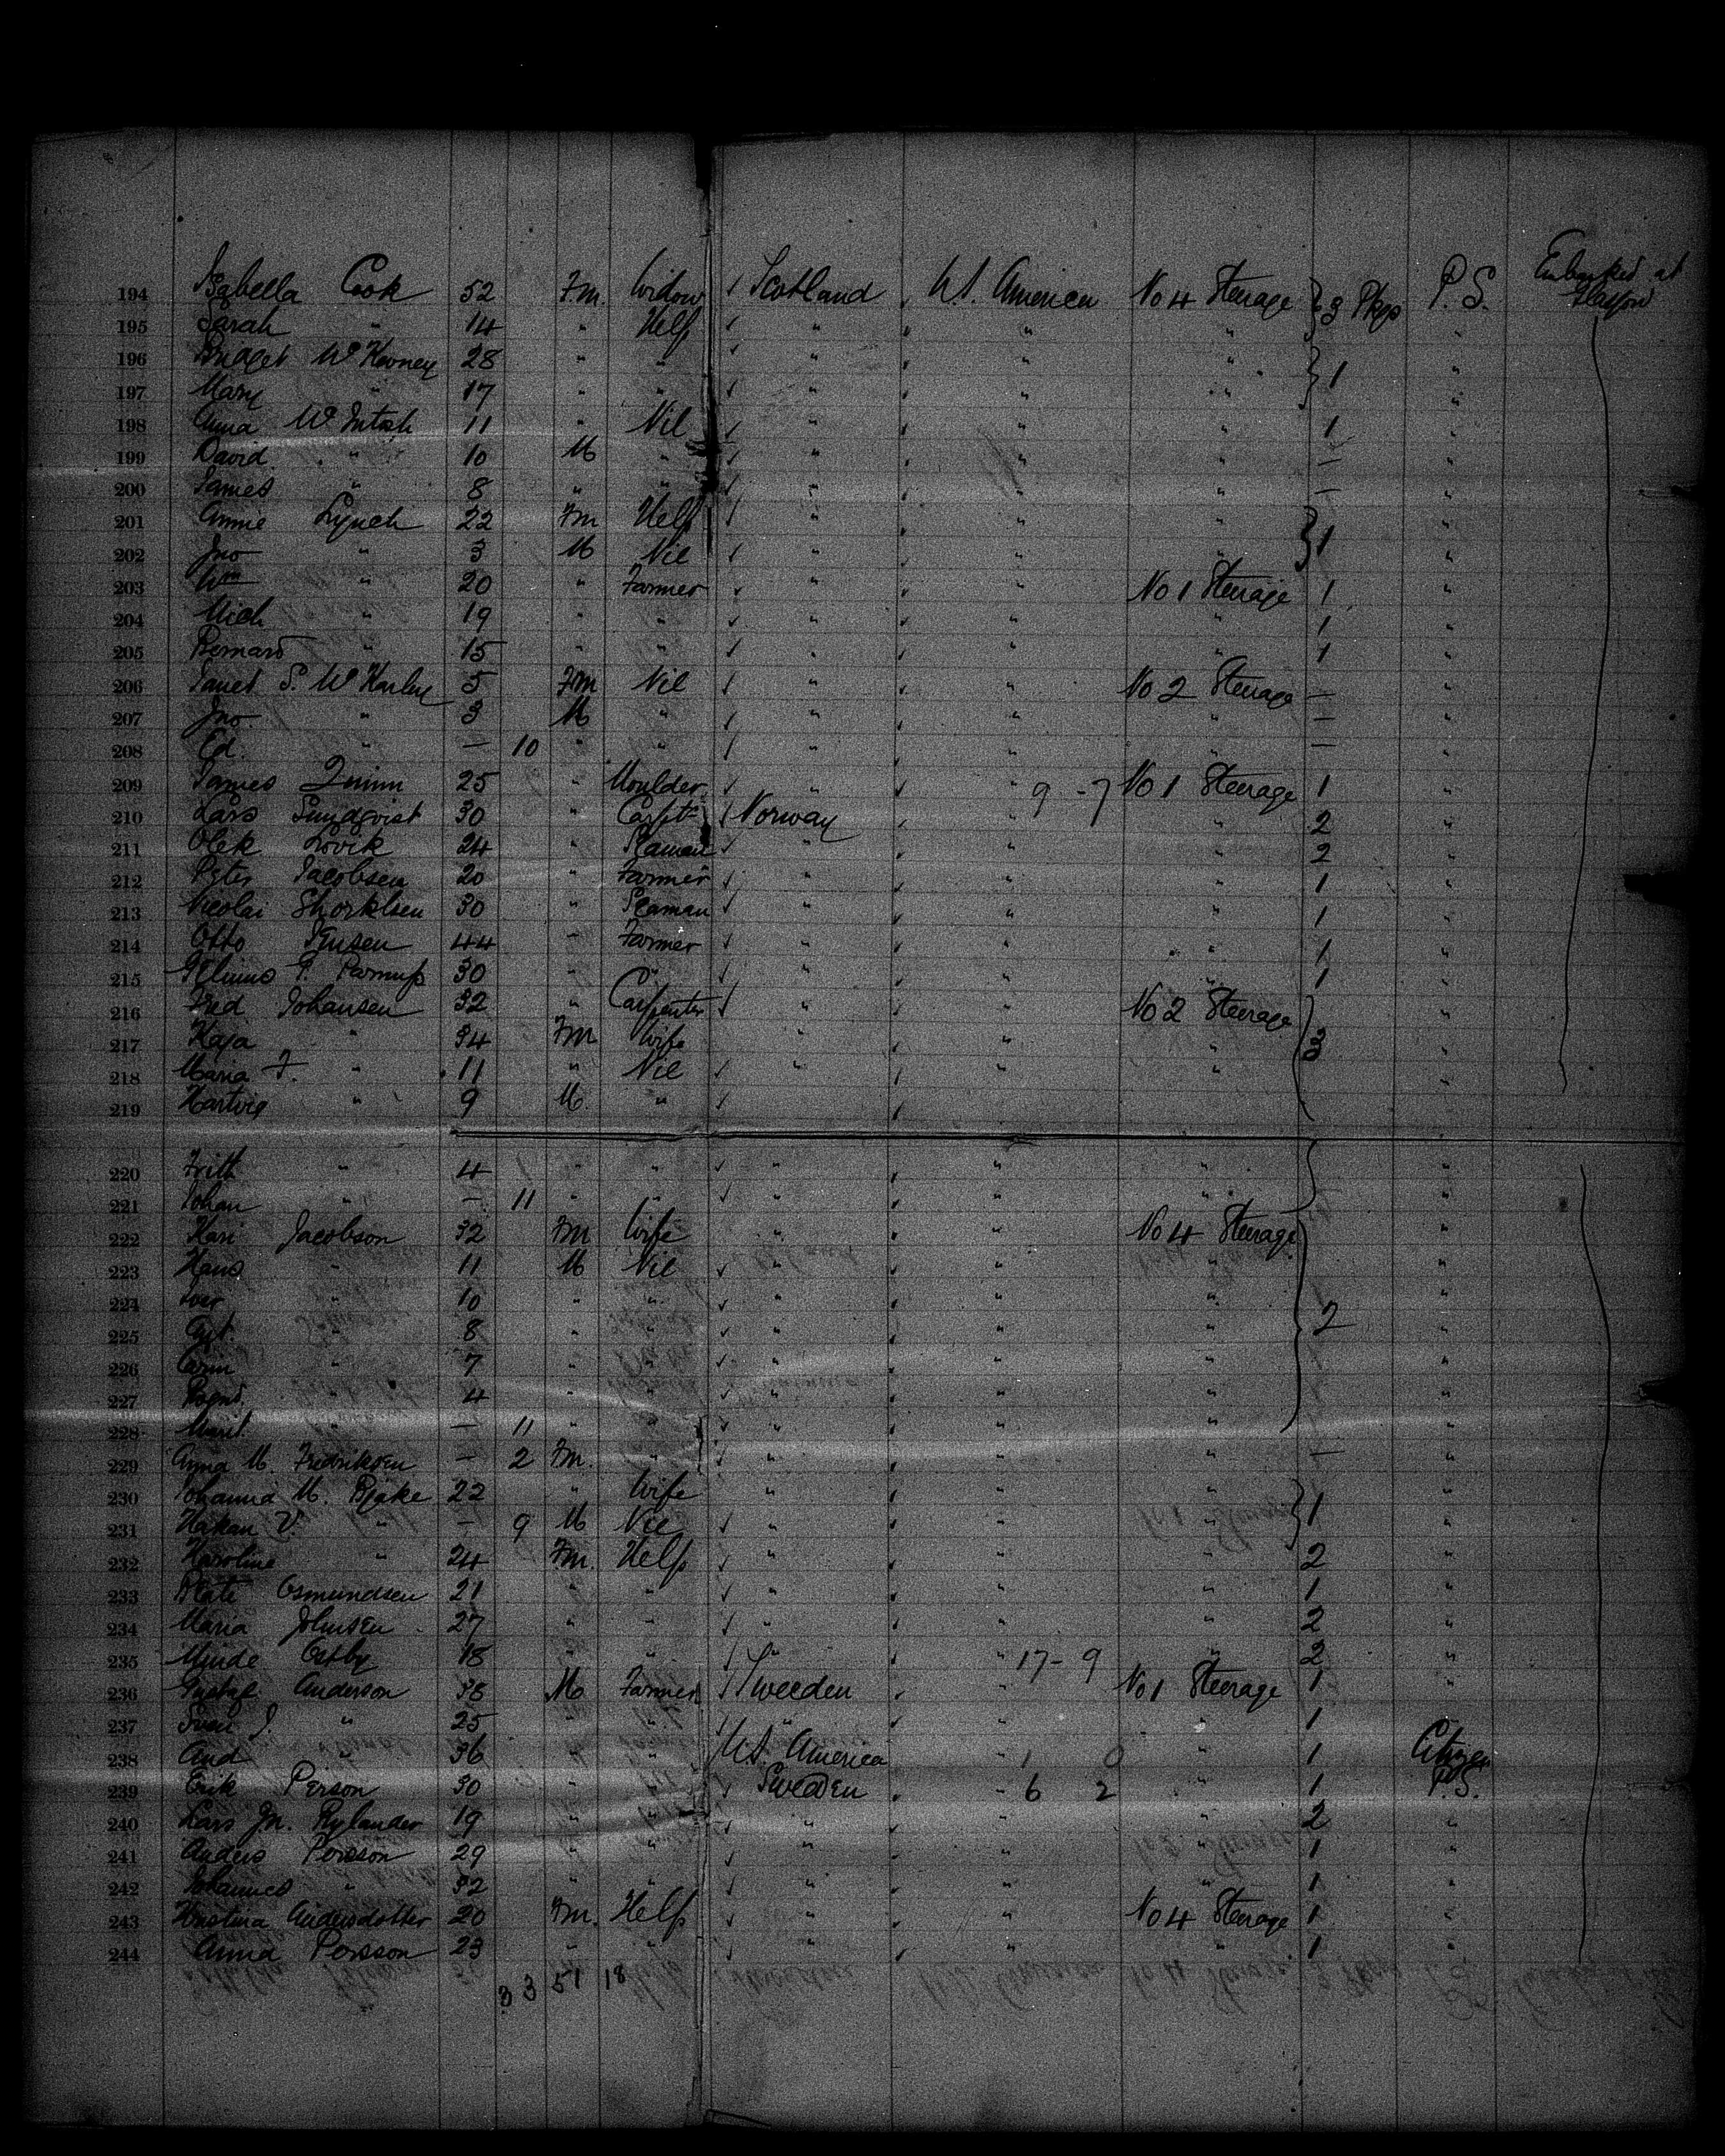 Embarked at
194 Isabella Cook 52 Fm. Widow Scotland U.S. America No 4 Steerage 3 Pkgs P.S. Glasgow
195 Sarah " 14 " Help " " " "
196 Bridget McKevney 28 " " " " " 1 "
197 Mary " 17 " " " " " "
198 Anna McIntosh 11 " Nil " " " 1 "
199 David " 10 M " " " " — "
200 James " 8 " " " " " — "
201 Annie Lynch 22 Fm Help " " " 1 "
202 Jno " 3 M Nil " " " "
203 Wm " 20 " Farmer " " No 1 Steerage 1 "
204 Mich " 19 " " " " " 1 "
205 Bernard " 15 " " " " " 1 "
206 Janet S. 5 Fm Nil " " No 2 Steerage — "
207 Jno " 3 M " " " " — "
208 Ed. " — 10 " " " " " — "
209 James Quinn 25 " Moulder " " 9 - 7 No 1 Steerage 1 "
210 Lars Sundqvist 30 " Carptr Norway " " 2 "
211 Olek Lovik 24 " Seaman " " " 2 "
212 Peter Jacobsen 20 " Farmer " " " 1 "
213 Nicolai 30 " Seaman " " " 1 "
214 Otto Jensen 44 " Farmer " " " 1 "
215 P. 30 " " " " " 1 "
216 Fred Johansen 32 " Carpenter " " No 2 Steerage "
217 Kaja " 34 Fm Wife " " " 3 "
218 Maria F. " 11 " Nil " " " "
219 Hartvig " 9 M. "
220 " 4 " " " " " "
221 Johan " — 11 " " " " " "
222 Kari Jacobson 32 Fm Wife " " No 4 Steerage "
223 Hans " 11 M Nil " " " "
224 Iver " 10 " " " " " "
225 " 8 " " " " " 2 "
226 " 7 " " " " " "
227 " 4 " " " " " "
228 Marit " — 11 " " " " " "
229 Anna M. Fredriksen — 2 Fm. " " " " — "
230 Johanna M. Bjake 22 " Wife " " " 1 "
231 Hakan V. " — 9 M Nil " " " "
232 Karoline " 24 Fm. Help " " " 2 "
233 Osmundsen 21 " " " " " 1 "
234 Maria Johnsen 27 " " " " " 2 "
235 Minde Ostby 18 " " " " 17 - 9 " 2 "
236 Gustaf Anderson 38 M Farmer Sweeden " No 1 Steerage 1 "
237 Sven J. " 25 " " " " " 1
238 And " 36 " " U.S. America 1 0 " 1 Citizen
239 Erik Person 30 " " Sweden 6 2 " 1 P.S.
240 Lars Jn. Rylander 19 " " " " " 2 "
241 Anders Persson 29 " " " " " 1 "
242 Johannes " 32 " " " " " 1 "
243 Kristina Andersdotter 20 Fm. Help " " No 4 Steerage 1 "
244 Anna Persson 23 " " " " " 1 "
3 3 51 18